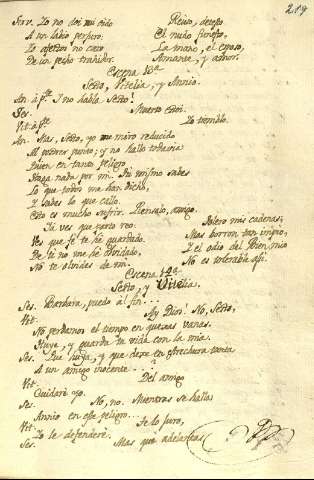 219
Serv. Yo no dei mi oido
A un labio perjuro;
Lo afectos no curo
De un pecho trahidor.
Reino, deseo
El nudo funesto,
La mano, el esposo,
Amante, y amor.
Escena 13ª
Sesto, Vitelia, y Annio.
An. á pte. I no habla Sesto!
Ses. Muerto estoi.
Vit. á pte. Yo tiemblo.
An. Mas, Sesto, yo me miro reducido
Al postrer punto; y no hallo todavia
Quien en tanto peligro
Haga nada por mi. Tu mismo sabes
Lo que todos me han dicho,
I sabes lo que callo.
Esto es mucho sufrir. Piensalo, amigo.
Tu ves que parto reo:
Ves que fe te hé guardado.
De ti no me hé olvidado,
No te olvides de mi.
Tolero mis cadenas;
Mas borron tan impio,
Y el odio del
No es tolerable asi.
Escena 14ª
Sesto, y Vitelia.
Ses. Barbara, puedo al fin...
Vit. Ay Dios! No, Sesto,
No perdamos el tiempo en quexas vanas.
Huye, y guarda tu vida con la mia.
Ses. Que huya, y que dexe en estrechura tanta
A un amigo inocente...?
Vit. Del amigo
Cuidaré yo.
Ses. No, no. Mientras se halla
Annio en ese peligro...
Vit. Te lo juro,
Yo le defenderé.
Ses. Mas qué adelantas